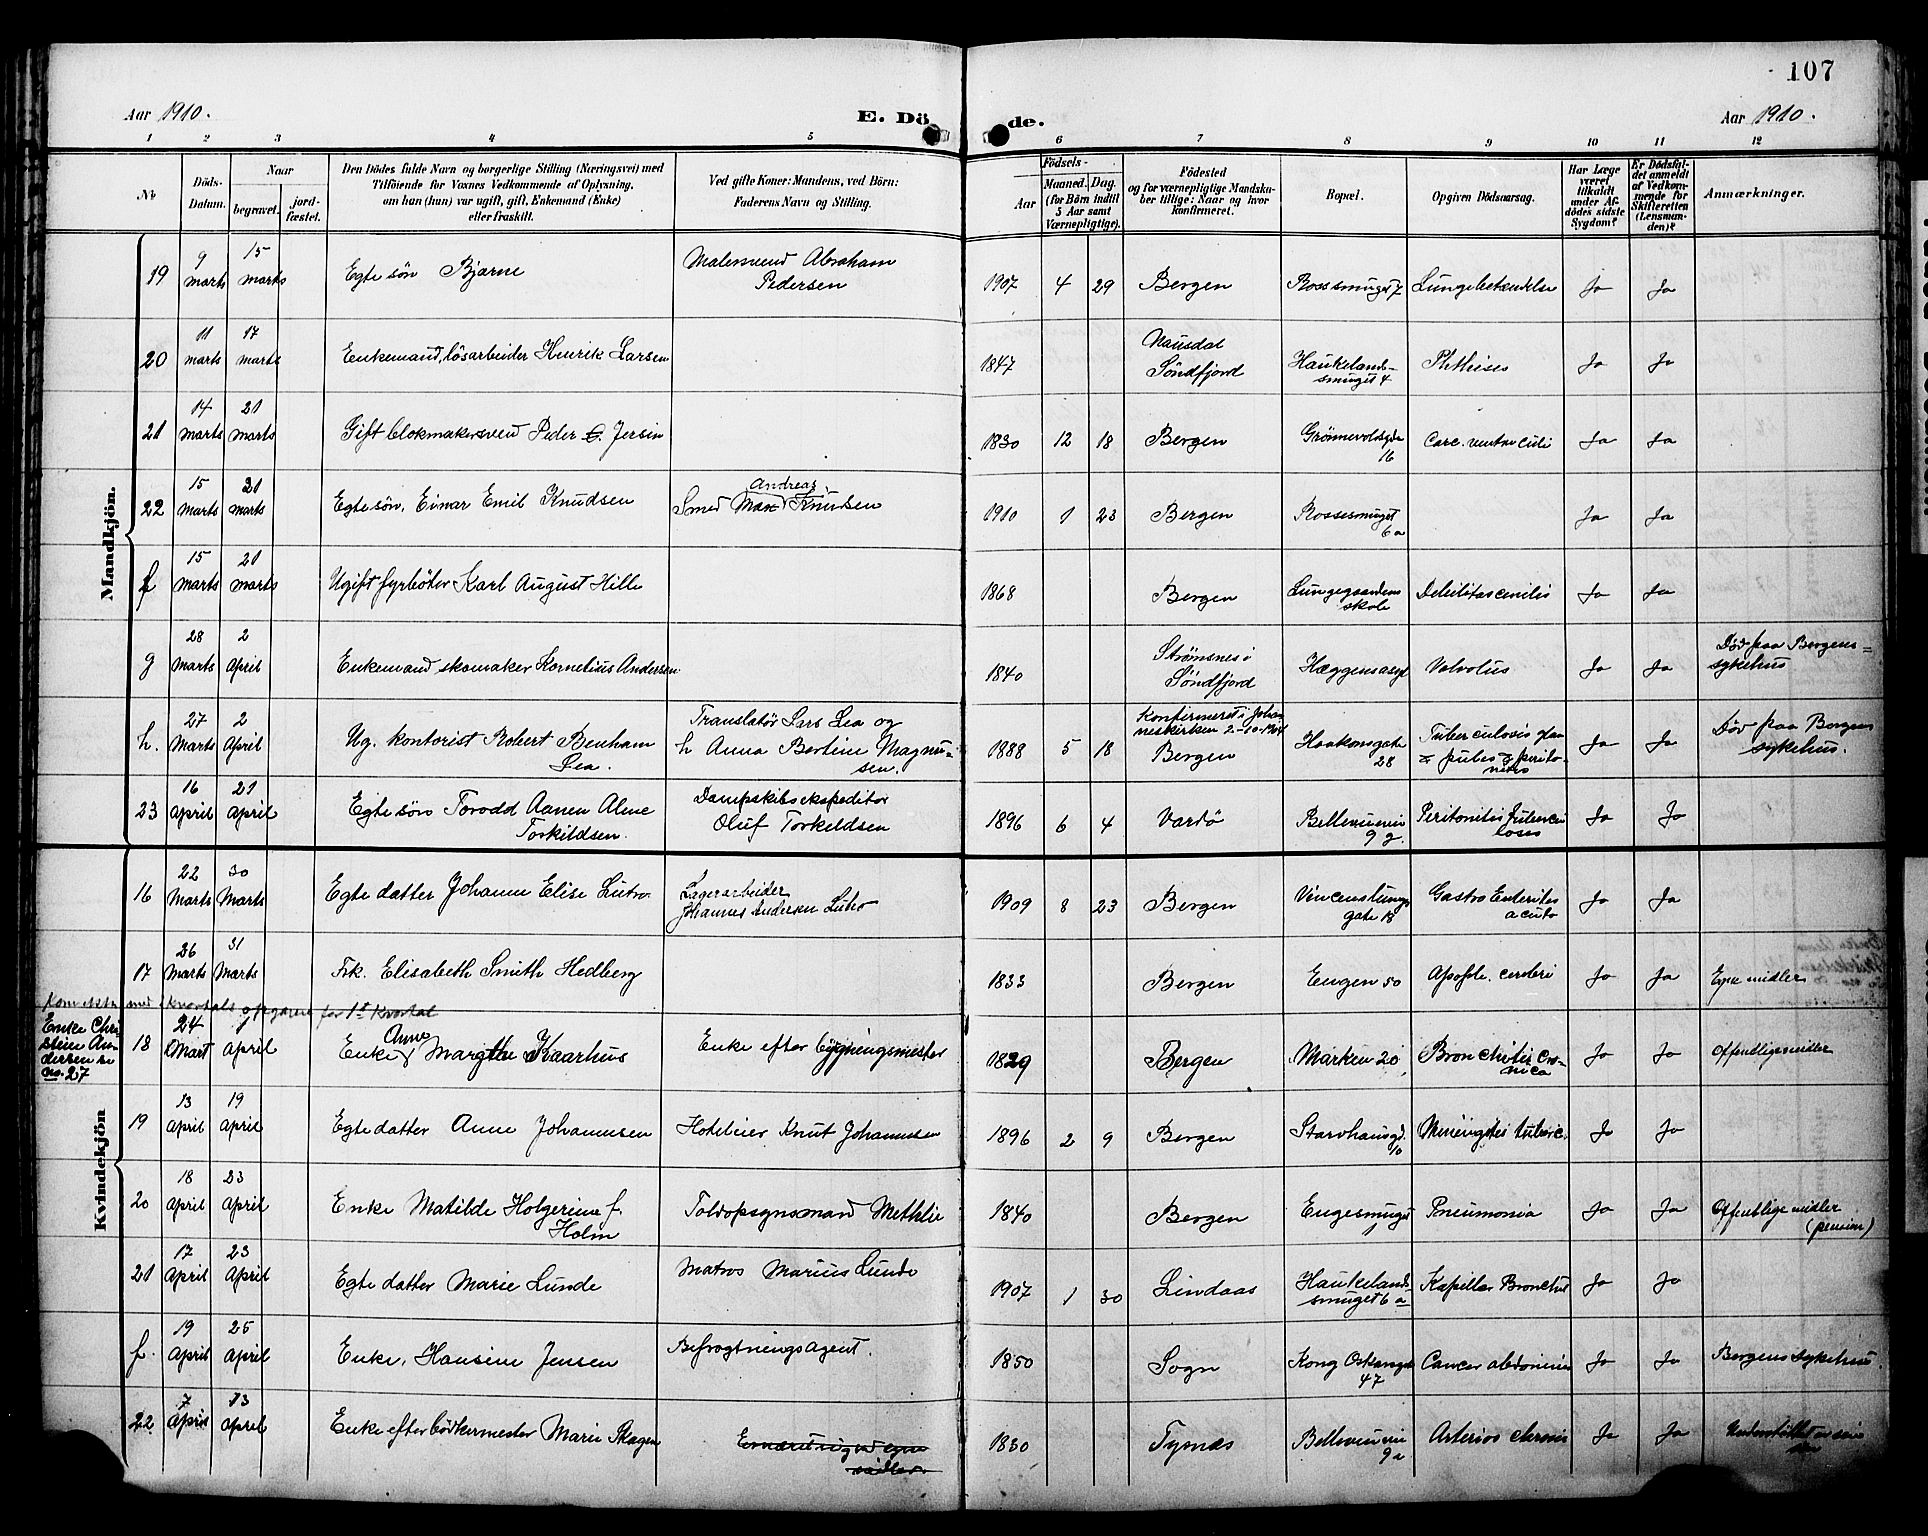 107
Aar 1910.
E. Dö
de.
Aar 1910.
1 2 3 4 5 6 7 8 9 10 11 12
No
Döds-
Datum.
Naar
begravet.
jord-
fæstet.
Den Dödes fulde Navn og borgerlige Stilling (Næringsvei) med
Tilföiende for Voxnes Vedkommende af Oplysning,
om han (hun) var ugift, gift, Enkemand (Enke)
eller fraskilt.
Ved gifte Koner: Mandens, ved Börn:
Faderens Navn og Stilling.
Födsels-
Aar
Maaned.
Dag.
(for Börn indtil
5 Aar samt
Værnepligtige).
Födested
og for værnepligtige Mandska-
ber tillige: Naar og hvor
konfirmeret.
Bopæl.
Opgiven Dödsaarsag.
Har Læge
været
tilkaldt
under Af-
dödes sidste
Sygdom?
Er Dödsfal-
det anmeldt
af Vedkom-
mende for
Skifteretten
(Lensman-
den)?
Anmærkninger.
Mandkjön.
19 9 marts 15 marts Egte søn Bjarne Malersvend Abraham Pedersen 1907 4 29 Bergen Rossesmuget 7 Lungebetændelse Ja Ja
20 11 marts 17 marts Enkemand, løsarbeider Henrik Larsen 1847 Nausdal Søndfjord Haukelands-smuget 4 Phthisis Ja Ja
21 14 marts 21 marts Gift blokmakersvend Peder G. Jersin 1830 12 18 Bergen Grønnevoldsgde 16 Carc. ventriculi Ja Ja
22 15 marts 21 marts Egte søn, Einar Emil Knudsen Smed Andreas Knudsen 1910 1 23 Bergen Rossesmuget 6a Ja Ja
f 15 marts 21 marts Ugift fyrbøter Karl August Hille 1868 Bergen Lungegaardens skole Debilitas cenilis Ja Ja
g 28 Marts 2 April Enkemand skomaker Kornelius Andersen 1840 Strømsnes i Søndfjord Hæggens asyl Volvolus Ja Ja Død paa Bergens sykehus
h. 27 Marts 2 April Ug. kontorist Robert Benham Lea. Translatør Lars Lea og h Anna Bertine Magnusen. 1888 5 18 Konfirmeret i Johanneskirken 2-10-1904 Bergen Haakonsgate 28 Tuberculosis Ja Ja Død paa Bergens sykehus.
23 16 April 21 April Egte søn Torodd Aanen Alme Torkildsen. Dampskibsekspeditør Oluf Torkeldsen 1896 6 4 Vardø Bellevuevei 9 g. Peritonitis tuberculoses Ja Ja
Kvindekjön
16 22 Marts 30 Marts Egte datter Johanne Elise Lutro Lagerarbeider Johannes Andersen Lutro 1909 8 23 Bergen Vincenslunggs gate 18 Gastro Enteritis acuta Ja Ja
17 26 Marts 31 Marts Frk. Elisabeth Smith Hedberg 1833 Bergen Engen 50 Apople. cerebri Ja Ja Egne midler
for 1st kvartal
Enke Chri-
stine An-
dersen se
no. 27
18 24 Mart 1 April Enke Anne Margthe Kaarhus Enke efter bygningsmester 1829 Bergen Marken 20 Bronchitis Cronica Ja Ja Offentlige midler
19 13 April 19 April Egte datter Anne Johannesen Hoteleier Knut Johannesen 1896 2 9 Bergen Starvhausgd. 10 Meningitis tuberc. Ja Ja
20 18 April 23 April Enke Matilde Holgerine f. Holm Toldopsynsmand Methlie 1840 Bergen Engesmuget 1 Pneumonia Ja Ja Offentlige midler (pension)
21 17 April 23 April Egte datter Marie Lunde Matros Marius Lunde 1907 1 30 Lindaas Haukelands-smuget 6 a Kapillær Bronchit Ja Ja
f. 19 April 25 April Enke, Hansine Jensen Befragtningsagent. 1850 Sogn Kong Oskarsgt 47 Cancer abdominis Ja Ja Bergens sykehus.
22 7 April 13 April Enke efter bødkermester Marie Skagen 1830 Tysnes Bellevuevei 9 a Arterios chronis Ja Ja